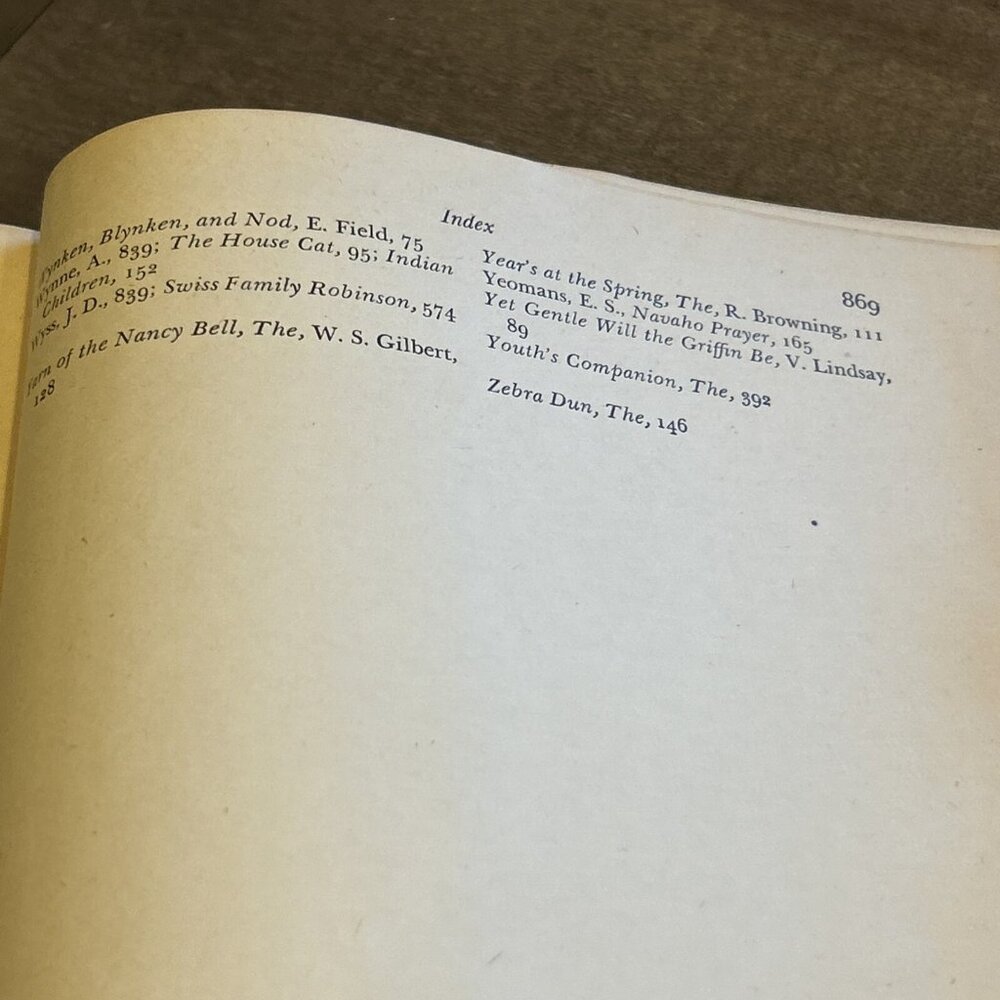 Index
869
Wynken, Blynken, and Nod, E. Field, 75
Wynne, A., 839; The House Cat, 95; Indian
Children, 152
Wyss, J. D., 839; Swiss Family Robinson, 574
Yarn of the Nancy Bell, The, W. S. Gilbert,
128
Year's at the Spring, The, R. Browning, 111
Yeomans, E. S., Navaho Prayer, 165
Yet Gentle Will the Griffin Be, V. Lindsay,
89
Youth's Companion, The, 392
Zebra Dun, The, 146